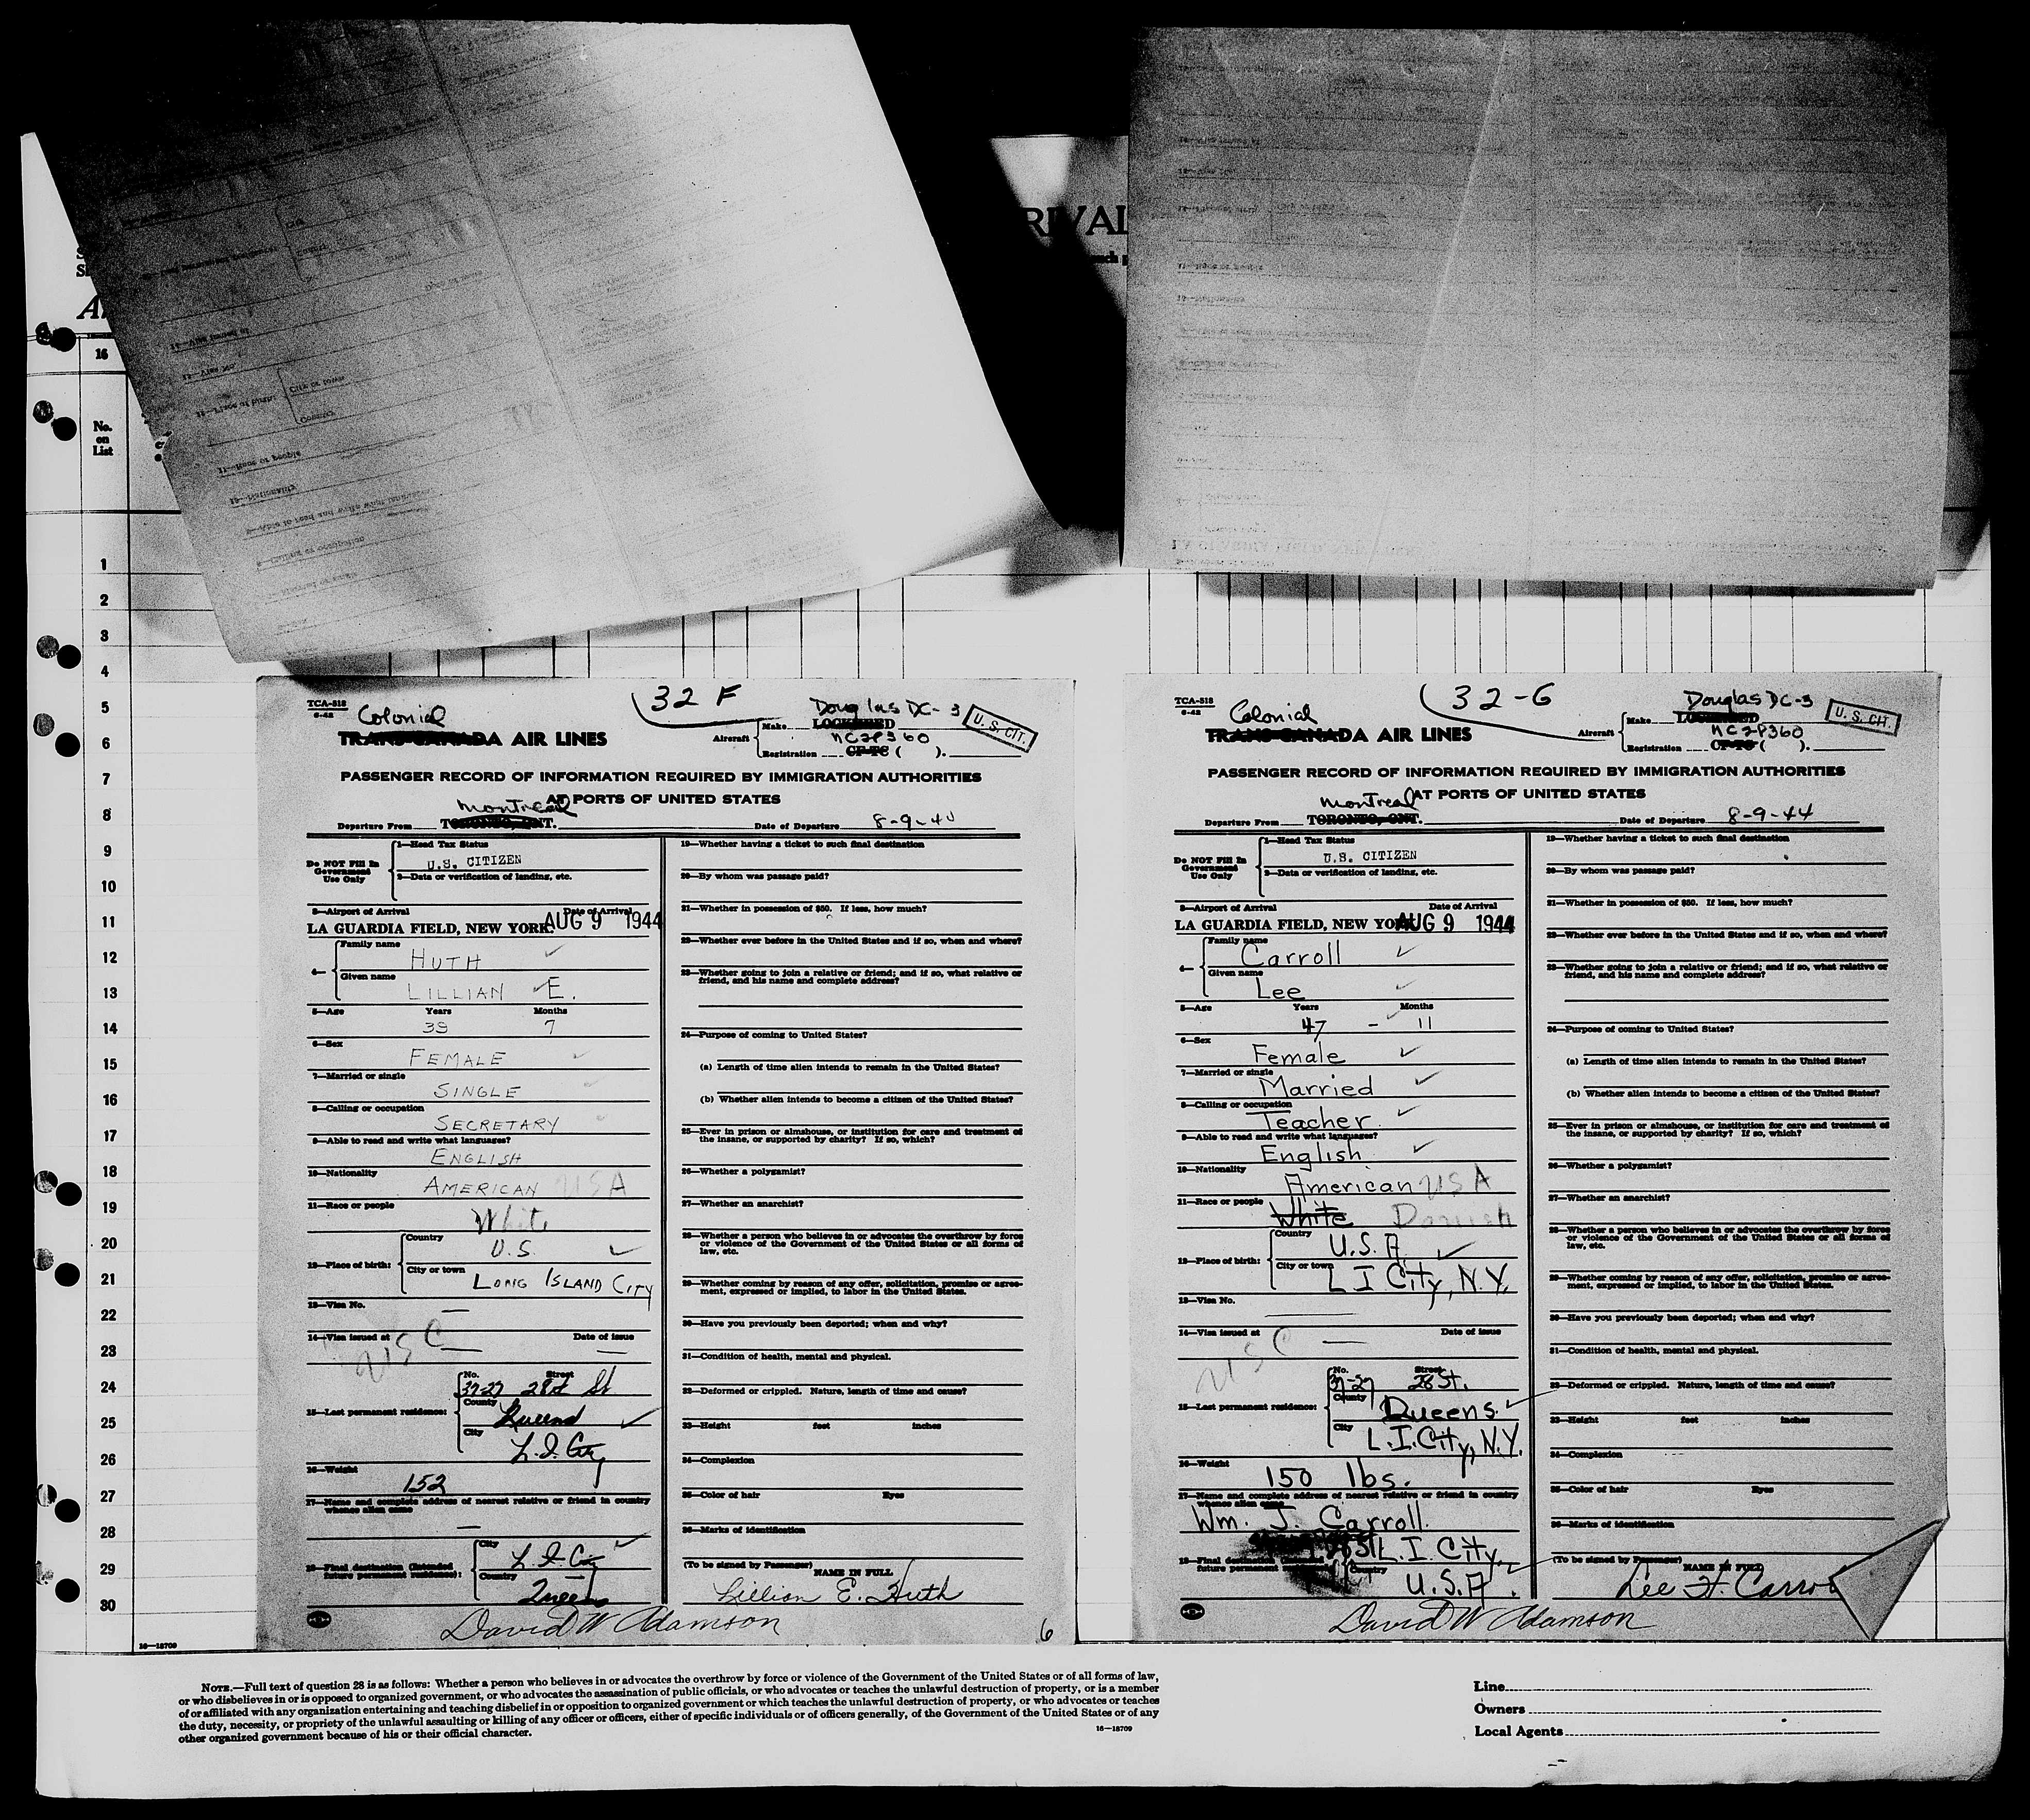 RIVAL
16
No.
on
List
1
2
3
4
5
6
7
8
9
10
11
12
13
14
15
16
17
18
19
20
21
22
23
24
25
26
27
28
29
30
16—18709
32 F
TCA-518
6-42
Colonial
TRANS-CANADA AIR LINES
Aircraft
Make Douglas DC-3
LOCKHEED
NC28360
Registration CF-TC ( ).
U. S. CIT.
PASSENGER RECORD OF INFORMATION REQUIRED BY IMMIGRATION AUTHORITIES
AT PORTS OF UNITED STATES
Montreal
Departure From TORONTO, ONT. Date of Departure 8-9-44
Do NOT Fill In
Government
Use Only
1—Head Tax Status
U.S. CITIZEN
2—Data or verification of landing, etc.
3—Airport of Arrival Date of Arrival
LA GUARDIA FIELD, NEW YORK. AUG 9 1944
4—
Family name
HUTH
Given name
LILLIAN E.
5—Age Years Months
39 7
6—Sex
FEMALE
7—Married or single
SINGLE
8—Calling or occupation
SECRETARY
9—Able to read and write what languages?
ENGLISH
10—Nationality
AMERICAN USA
11—Race or people
White
12—Place of birth:
Country
U.S.
City or town
LONG ISLAND CITY
13—Visa No.
—
14—Visa issued at Date of issue
USC — —
15—Last permanent residence:
No. Street
37-27 28th St
County
Queens
City
L.I. City
16—Weight
152
17—Name and complete address of nearest relative or friend in country
whence alien came
—
18—Final destination (Intended
future permanent residence):
City
L.I.C.
Country
Queens
19—Whether having a ticket to such final destination
20—By whom was passage paid?
21—Whether in possession of $50. If less, how much?
22—Whether ever before in the United States and if so, when and where?
23—Whether going to join a relative or friend; and if so, what relative or
friend, and his name and complete address?
24—Purpose of coming to United States?
(a) Length of time alien intends to remain in the United States?
(b) Whether alien intends to become a citizen of the United States?
25—Ever in prison or almshouse, or institution for care and treatment of
the insane, or supported by charity? If so, which?
26—Whether a polygamist?
27—Whether an anarchist?
28—Whether a person who believes in or advocates the overthrow by force
or violence of the Government of the United States or all forms of
law, etc.
29—Whether coming by reason of any offer, solicitation, promise or agree-
ment, expressed or implied, to labor in the United States.
30—Have you previously been deported; when and why?
31—Condition of health, mental and physical.
32—Deformed or crippled. Nature, length of time and cause?
33—Height feet inches
34—Complexion
35—Color of hair Eyes
36—Marks of identification
(To be signed by Passenger) NAME IN FULL
Lillian E. Huth
David W Adamson
6
32-G
TCA-518
6-42
Colonial
TRANS-CANADA AIR LINES
Aircraft
Make Douglas DC-3
LOCKHEED
NC28360
Registration CF-TC ( ).
U. S. CIT.
PASSENGER RECORD OF INFORMATION REQUIRED BY IMMIGRATION AUTHORITIES
AT PORTS OF UNITED STATES
Montreal
Departure From TORONTO, ONT. Date of Departure 8-9-44
Do NOT Fill In
Government
Use Only
1—Head Tax Status
U.S. CITIZEN
2—Data or verification of landing, etc.
3—Airport of Arrival Date of Arrival
LA GUARDIA FIELD, NEW YORK. AUG 9 1944
4—
Family name
Carroll
Given name
Lee
5—Age Years Months
47 - 11
6—Sex
Female
7—Married or single
Married
8—Calling or occupation
Teacher
9—Able to read and write what languages?
English
10—Nationality
American USA
11—Race or people
White Danish
12—Place of birth:
Country
U.S.A
City or town
L I City, N.Y.
13—Visa No.
14—Visa issued at Date of issue
USC —
15—Last permanent residence:
No. Street
37-27 28 St.
County
Queens
City
L.I. City, N.Y.
16—Weight
150 lbs.
17—Name and complete address of nearest relative or friend in country
whence alien came
Wm. J. Carroll.
18—Final destination
future permanent
L.I. City,
Country
U.S.A.
19—Whether having a ticket to such final destination
20—By whom was passage paid?
21—Whether in possession of $50. If less, how much?
22—Whether ever before in the United States and if so, when and where?
23—Whether going to join a relative or friend; and if so, what relative or
friend, and his name and complete address?
24—Purpose of coming to United States?
(a) Length of time alien intends to remain in the United States?
(b) Whether alien intends to become a citizen of the United States?
25—Ever in prison or almshouse, or institution for care and treatment of
the insane, or supported by charity? If so, which?
26—Whether a polygamist?
27—Whether an anarchist?
28—Whether a person who believes in or advocates the overthrow by force
or violence of the Government of the United States or all forms of
law, etc.
29—Whether coming by reason of any offer, solicitation, promise or agree-
ment, expressed or implied, to labor in the United States.
30—Have you previously been deported; when and why?
31—Condition of health, mental and physical.
32—Deformed or crippled. Nature, length of time and cause?
33—Height feet inches
34—Complexion
35—Color of hair Eyes
36—Marks of identification
(To be signed by Passenger) NAME IN FULL
Lee H. Carro
David W Adamson
NOTE.—Full text of question 28 is as follows: Whether a person who believes in or advocates the overthrow by force or violence of the Government of the United States or of all forms of law,
or who disbelieves in or is opposed to organized government, or who advocates the assassination of public officials, or who advocates or teaches the unlawful destruction of property, or is a member
of or affiliated with any organization entertaining and teaching disbelief in or opposition to organized government or which teaches the unlawful destruction of property, or who advocates or teaches
the duty, necessity, or propriety of the unlawful assaulting or killing of any officer or officers, either of specific individuals or of officers generally, of the Government of the United States or of any
other organized government because of his or their official character.
16—18709
Line
Owners
Local Agents